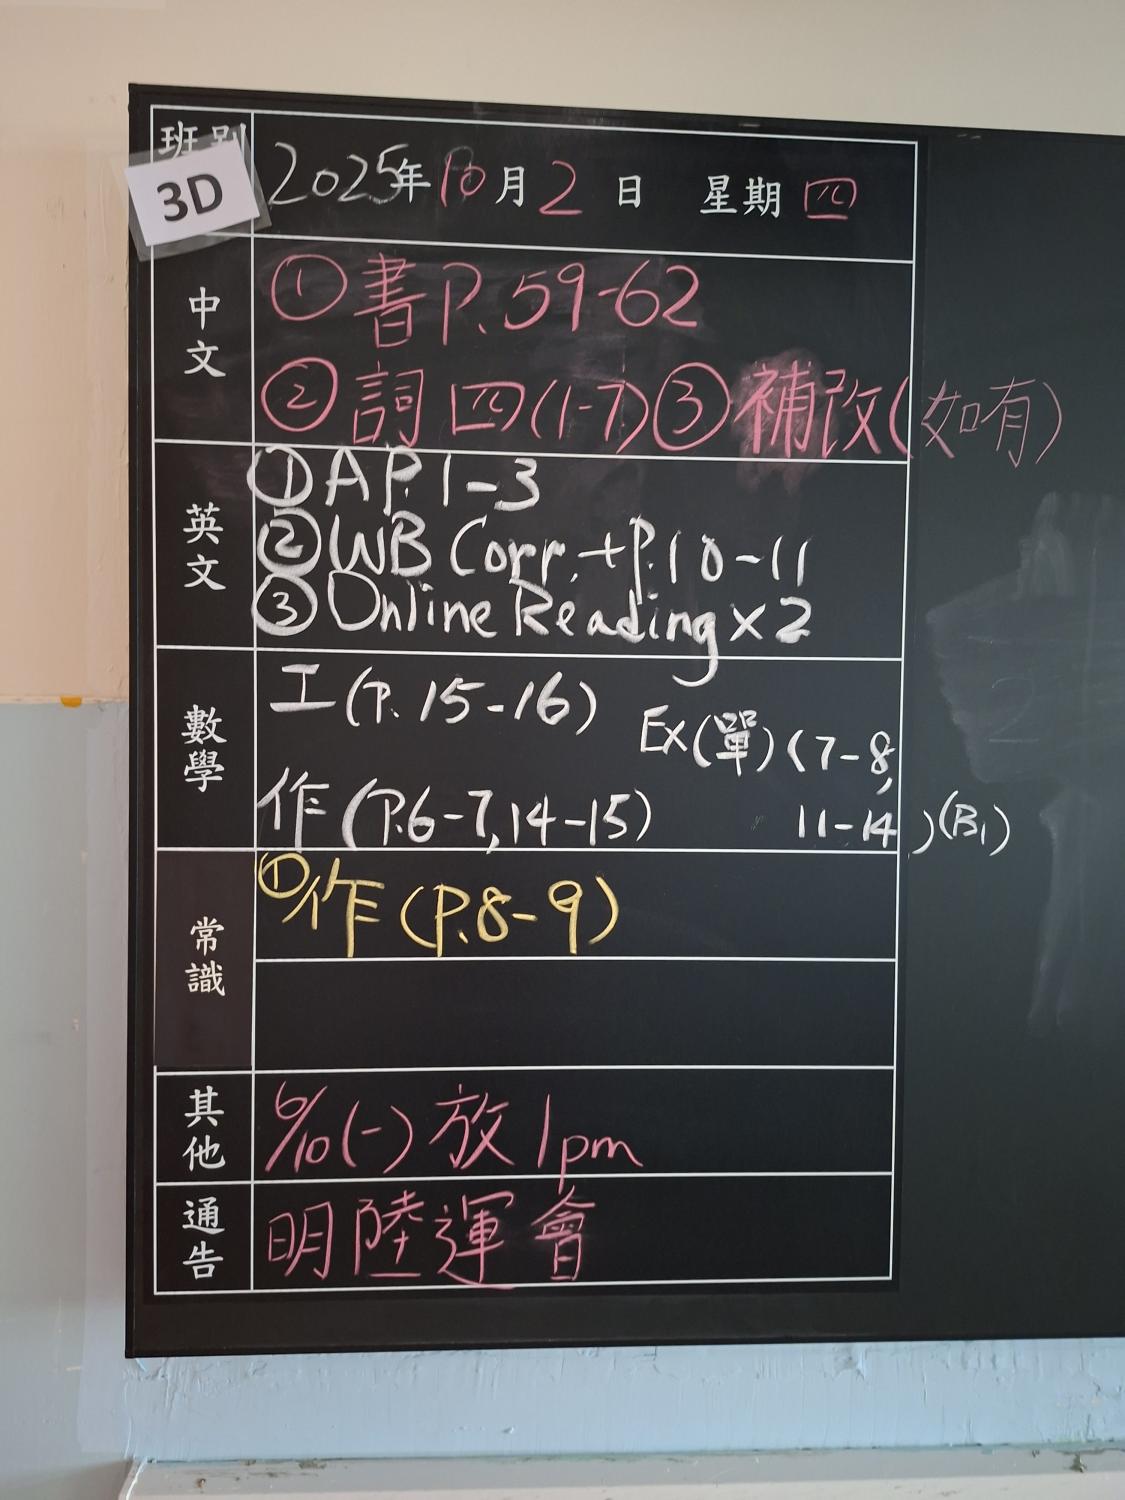 班別
3D
2025年10月2日 星期四
中文
①書P.59-62
②詞四(1-7)③補改(如有)
英文
①A P.1-3
②WB Corr.+P.10-11
③Online Reading x2
數學
工(P.15-16)
Ex(單)(7-8,
作(P.6-7,14-15)
11-14)(B1)
常識
①作(P.8-9)
其他
6/10(一)放1pm
通告
明陸運會